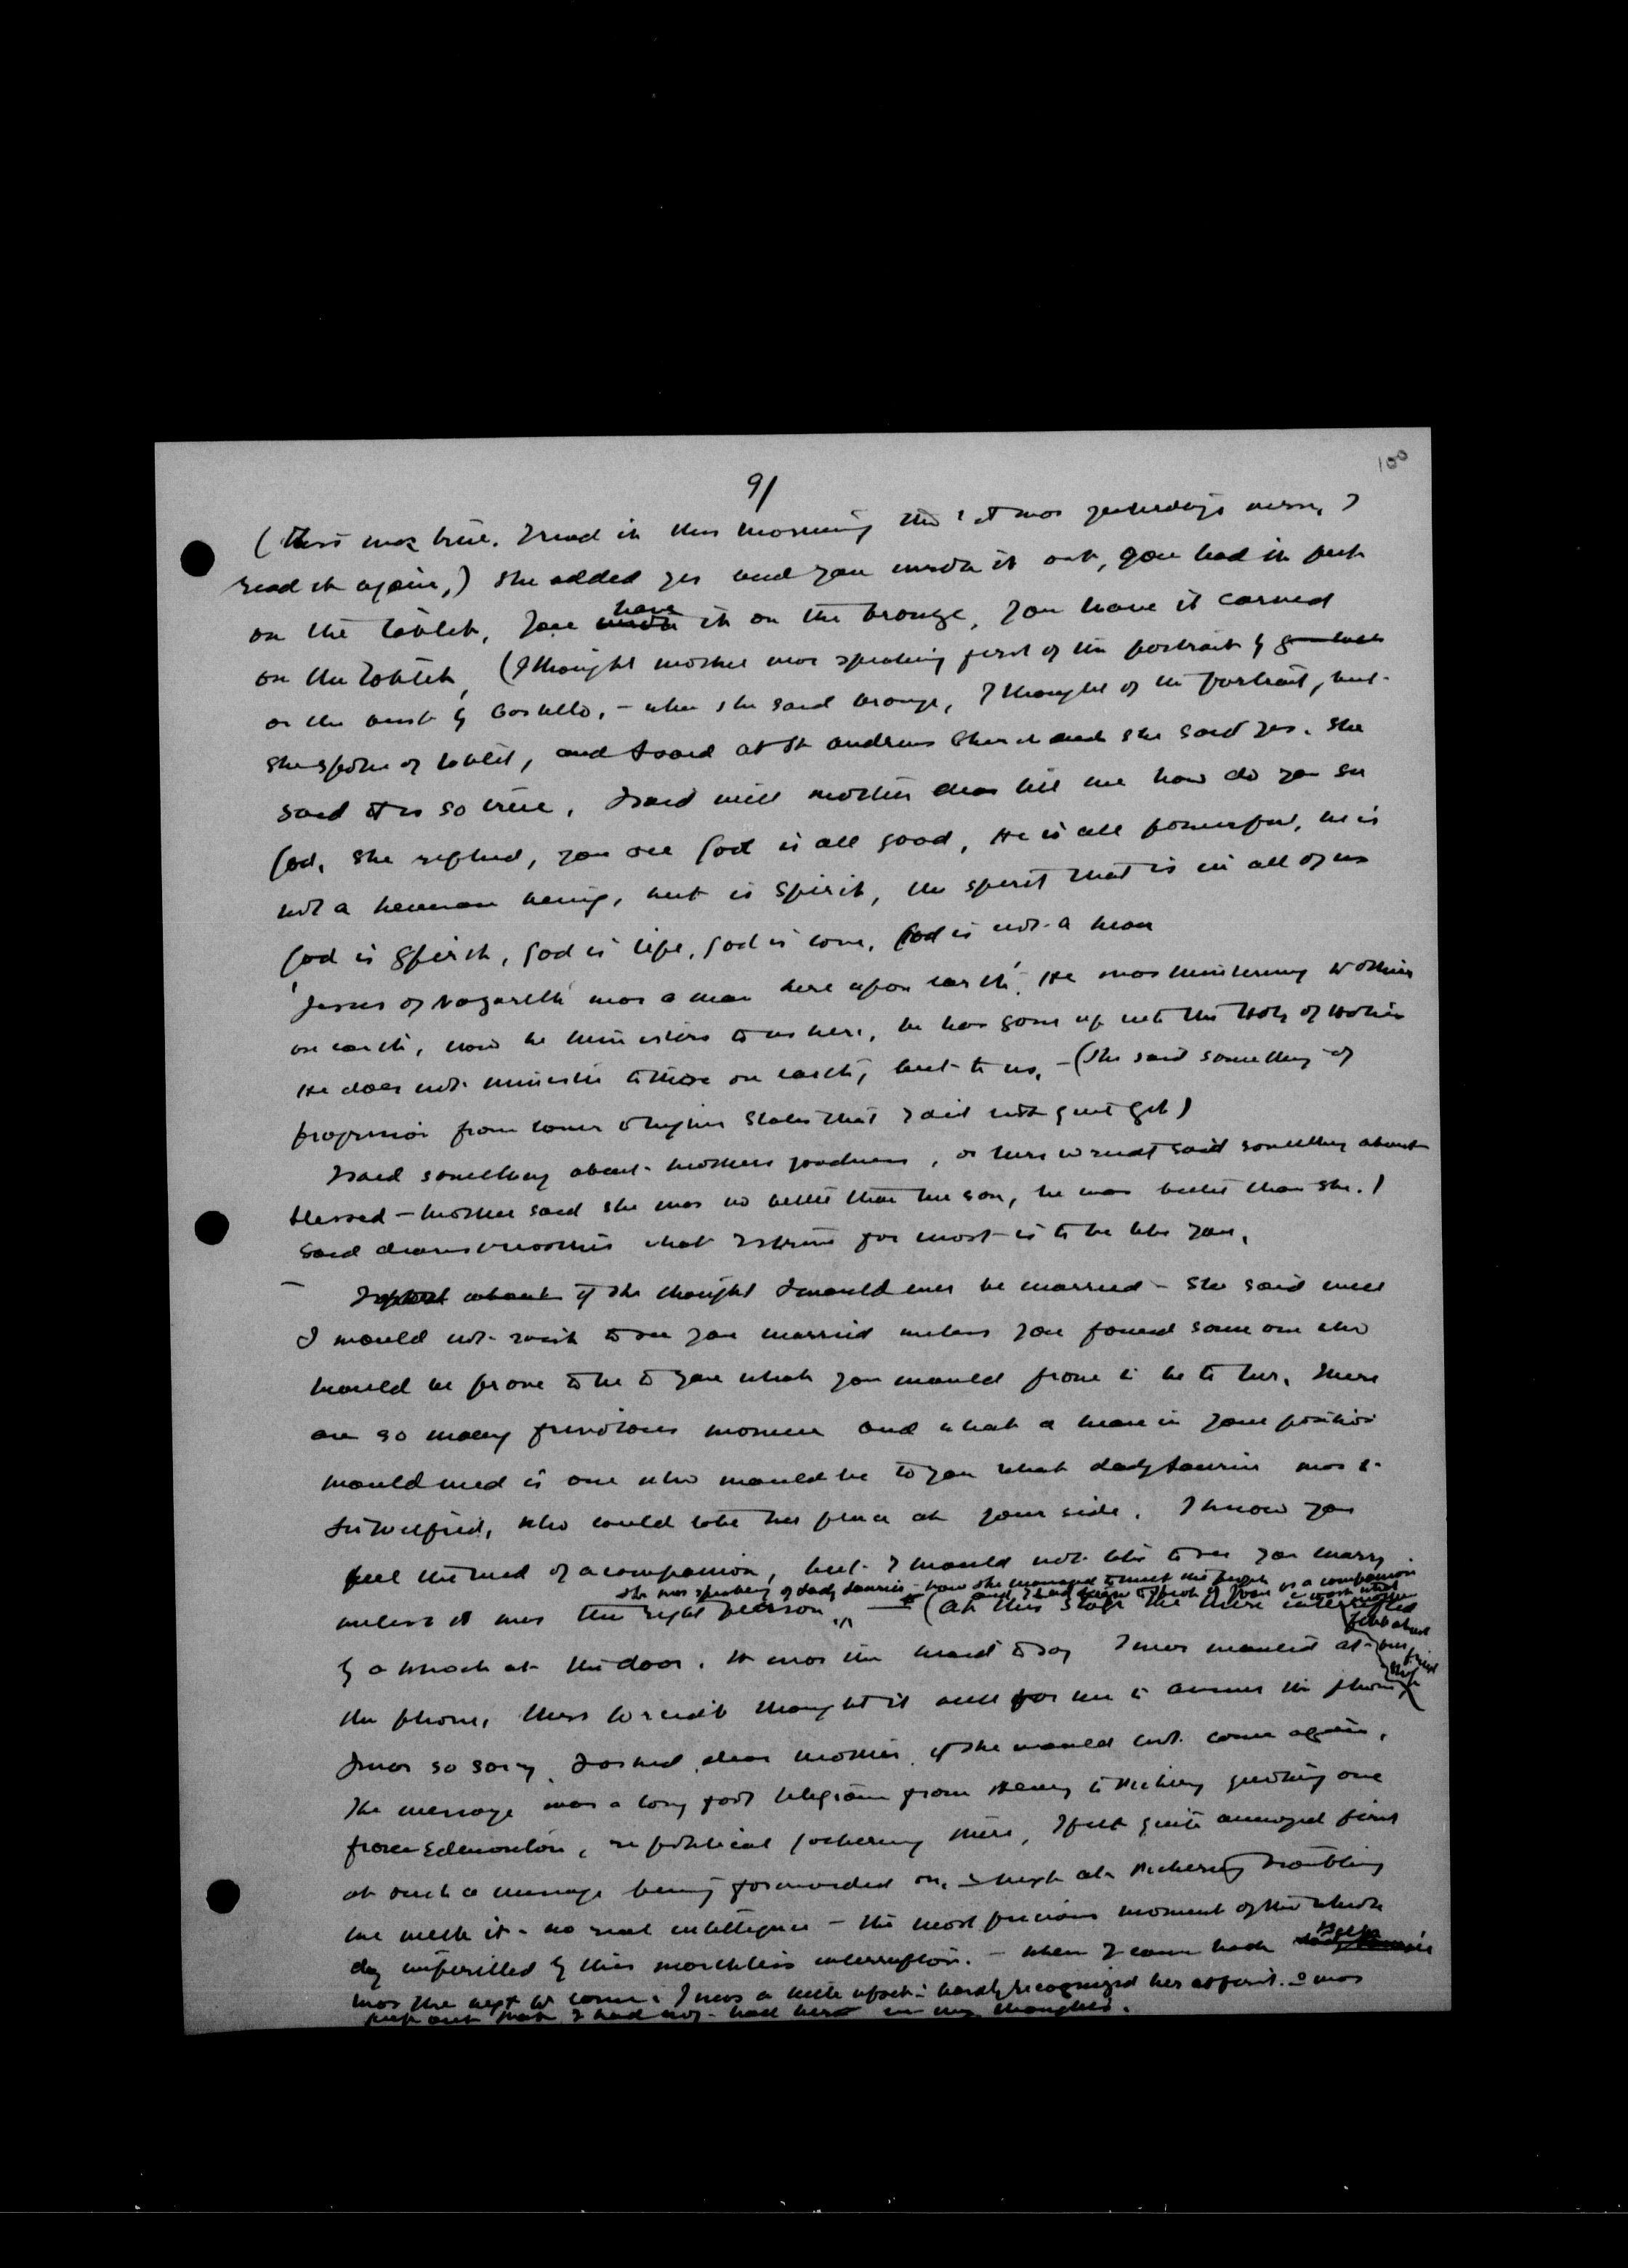 100
9/
(This was true. I read it this morning tho' it was yesterday's verse, I
read it again,) she added yes and you wrote it out, you had it put
on the tablet, You wrote have it on the bronze, you have it carved
on the tablet, (I thought mother was speaking first of the portrait by
or the bust by Costello, - when she said bronze, I thought of the portrait, but
she spoke of tablet, and I said at St Andrews Church and she said yes. She
said it is so true, I said will mother dear tell me how do you see
God, she replied, you see God is all good, He is all powerful, he is
not a human being, but is spirit, the spirit that is in all of us
God is Spirit, God is life, God is love, God is not a man
'Jesus of Nazareth was a man here upon earth'. He was ministering to others
on earth, now he ministers to us here, he has gone up into the Holy of Holies
He does not minister to those on earth, but to us, - (She said something of
progression from lower to higher states that I did not quite get)
I said something about mothers goodness, or Miss Wriedt said something about
blessed - mother said she was no better than her son, he was better than she. I
said dearest mother what I strive for most is to be like you,
- I asked about if she thought I would ever be married - She said well
I would not wish to see you married unless you found some one who
would be prove to be to you what you would prove to be to her. There
are so many frivolous women and what a man in your position
would need is one who would be to you what Lady Laurier was to
Sir Wilfrid, who could take her place at your side. I know you
feel the need of a companion, but I would not like to see you marry
she was speaking of Lady Laurier - how she managed to meet the people
unless it was the right person, - (at this stage the there interrupted
by a knock at the door. It was the maid to say I was wanted at
the phone, Miss Wriedt thought it well for me to answer the phone
I was so sorry. I asked dear mother if she would not come again.
The message was a long fool telegram from Henry to Pickering quoting one
from Edmonton, re political bickering there, I felt quite annoyed first
at such a message being forwarded on, & next at Pickering troubling
me with it - no real intelligence - the most precious moment of the whole
day imperilled by this worthless interruption. - When I came back
was the next to come. I was a little upset - hardly recognized her at first. & was
put out that I had not had her in my thoughts.